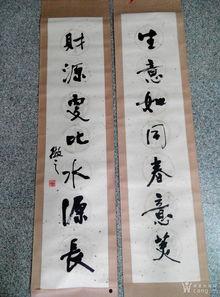 生意如同春意美
財源更比水源長
cang.com